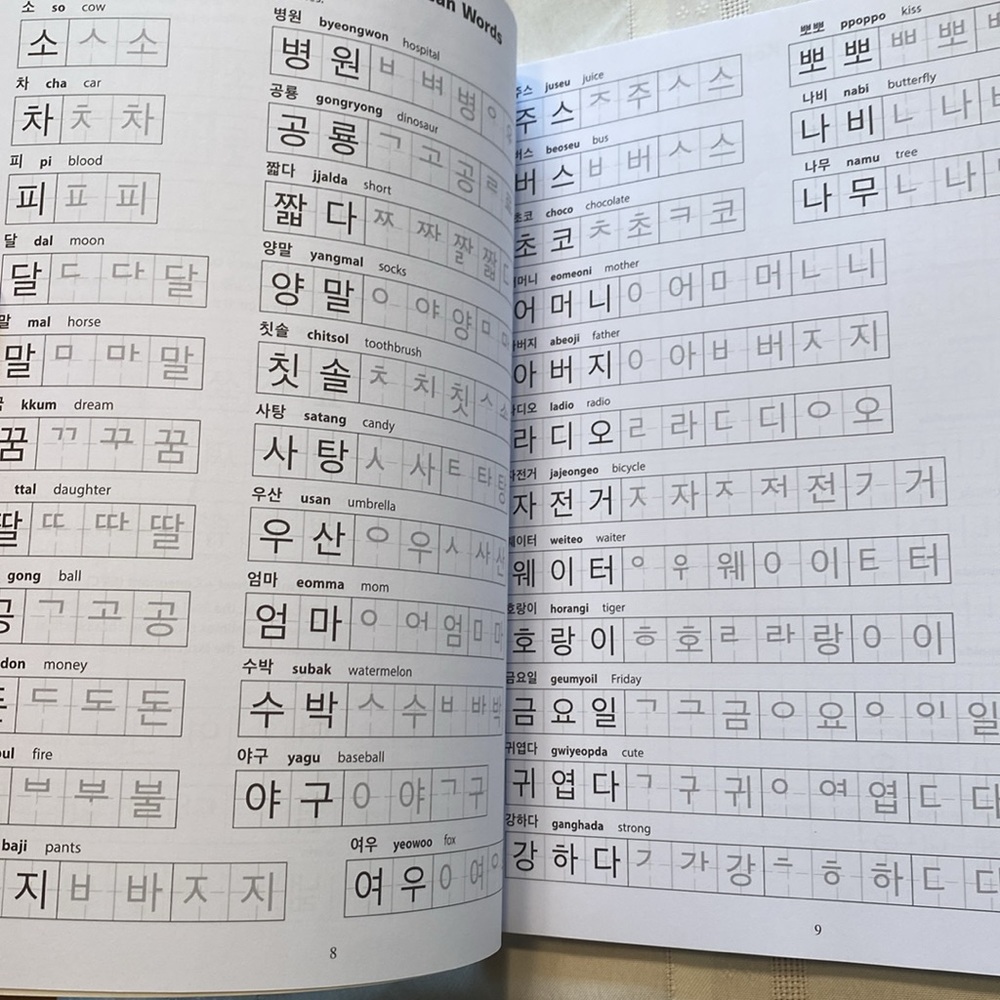 Words
소 so cow
소 ㅅ 소
차 cha car
차 ㅊ 차
피 pi blood
피 ㅍ 피
달 dal moon
달 ㄷ 다 달
말 mal horse
말 ㅁ 마 말
kkum dream
꿈 ㄲ 꾸 꿈
ttal daughter
딸 ㄸ 따 딸
gong ball
공 ㄱ 고 공
don money
ㄷ 도 돈
fire
ㅂ 부 불
baji pants
지 ㅂ 바 ㅈ 지
병원 byeongwon hospital
병 원 ㅂ 벼 병 ㅇ
공룡 gongryong dinosaur
공 룡 ㄱ 고 공 ㄹ
짧다 jjalda short
짧 다 ㅉ 짜 짤 짧
양말 yangmal socks
양 말 ㅇ 야 양 ㅁ 마
칫솔 chitsol toothbrush
칫 솔 ㅊ 치 칫 ㅅ 소
사탕 satang candy
사 탕 ㅅ 사 ㅌ 타 탕
우산 usan umbrella
우 산 ㅇ 우 ㅅ 사 산
엄마 eomma mom
엄 마 ㅇ 어 엄 ㅁ 마
수박 subak watermelon
수 박 ㅅ 수 ㅂ 바 박
야구 yagu baseball
야 구 ㅇ 야 ㄱ 구
여우 yeowoo fox
여 우 ㅇ 여 ㅇ
8
주스 juseu juice
주 스 ㅈ 주 ㅅ 스
버스 beoseu bus
버 스 ㅂ 버 ㅅ 스
초코 choco chocolate
초 코 ㅊ 초 ㅋ 코
어머니 eomeoni mother
어 머 니 ㅇ 어 ㅁ 머 ㄴ 니
버지 abeoji father
아 버 지 ㅇ 아 ㅂ 버 ㅈ 지
디오 ladio radio
라 디 오 ㄹ 라 ㄷ 디 ㅇ 오
자전거 jajeongeo bicycle
자 전 거 ㅈ 자 ㅈ 저 전 ㄱ 거
웨이터 weiteo waiter
웨 이 터 ㅇ 우 웨 ㅇ 이 ㅌ 터
호랑이 horangi tiger
호 랑 이 ㅎ 호 ㄹ 라 랑 ㅇ 이
금요일 geumyoil Friday
금 요 일 ㄱ 그 금 ㅇ 요 ㅇ 이 일
귀엽다 gwiyeopda cute
귀 엽 다 ㄱ 구 귀 ㅇ 여 엽 ㄷ 다
강하다 ganghada strong
강 하 다 ㄱ 가 강 ㅎ 하 ㄷ 다
뽀뽀 ppoppo kiss
뽀 뽀 ㅃ 뽀 ㅃ
나비 nabi butterfly
나 비 ㄴ 나 ㅂ
나무 namu tree
나 무 ㄴ 나
9